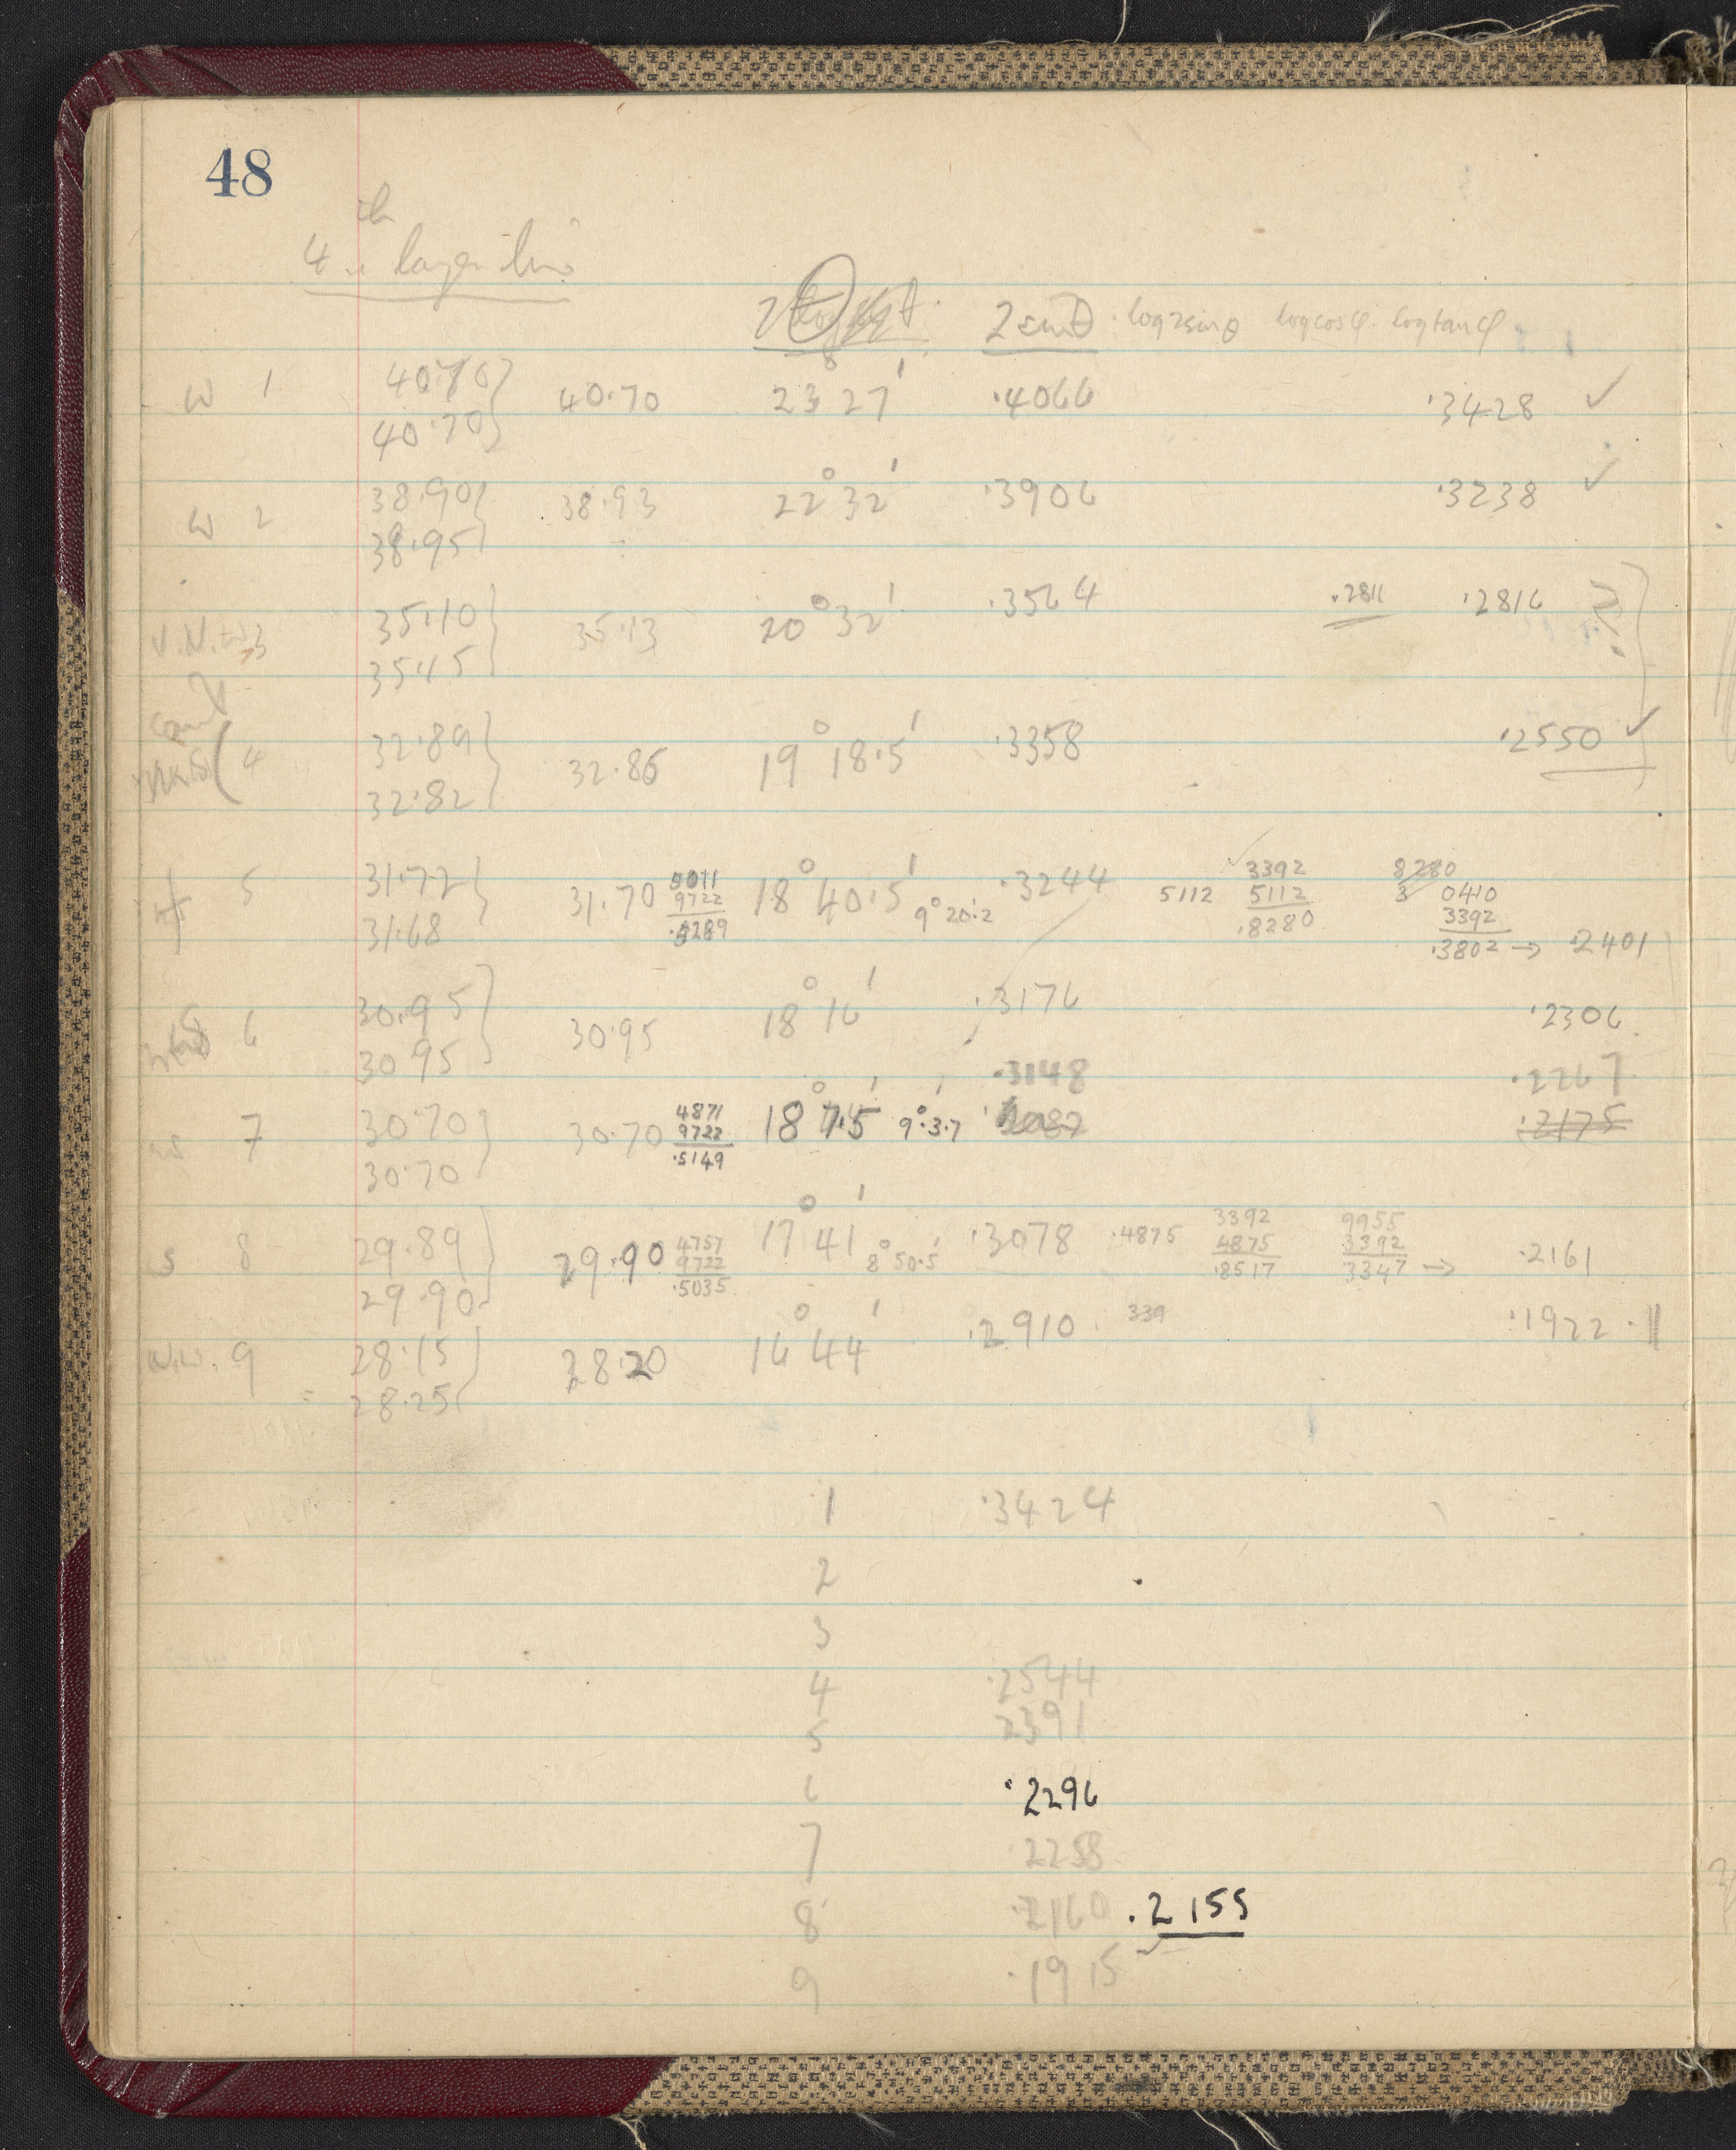 48
4th layer line
2θ 2 sinθ log 2sinθ log cosφ log tanφ
w 1 40.70 } 40.70 23° 27' .4066 .3428 ✓
40.70
w 2 38.90 } 38.93 22° 32' .3906 .3238 ✓
38.95
3 35.10 } 35.13 20° 32' .3564 .2811 .2816 ?
35.15
4 32.89 } 32.86 19° 18.5' .3358 .2550 ✓
32.82
5 31.72 } 31.70 5011 18° 40.5' 9° 20.2' .3244 5112 3392 8280
31.68 9722 5112 3 0410
.5289 .8280 3392
.3802 → .2401
6 30.95 } 30.95 18° 16' .3176 .2306
30.95
.3148 .2267
7 30.70 } 30.70 4871 18° 7.5' 9° 3.7' .2175
30.70 9722
.5149
s 8 29.89 } 29.90 4757 17° 41' 8° 50.5' .3078 .4875 3392 9955
29.90 9722 4875 3392
.5035 .8517 3347 → .2161
w.w. 9 28.15 } 28.20 16° 44' .2910 339 .1922
28.25
1 .3424
2
3
4 .2544
5 2391
6 .2296
7 2258
8 .2160 .2155
9 .1915